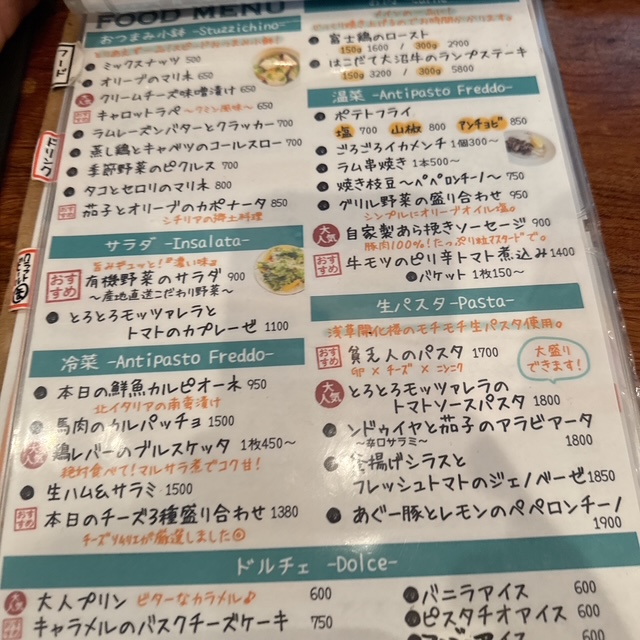 FOOD MENU
おつまみ小鉢 -Stuzzichino-
ミックスナッツ 500
オリーブのマリネ 650
人気 クリームチーズ味噌漬け 650
おすすめ キャロットラペ 〜クミン風味〜 650
ラムレーズンバターとクラッカー 700
蒸し鶏とキャベツのコールスロー 700
季節野菜のピクルス 700
タコとセロリのマリネ 800
おすすめ 茄子とオリーブのカポナータ 850
シチリアの郷土料理
サラダ -Insalata-
旨みギュッと!『濃い味』
おすすめ 有機野菜のサラダ 900
〜産地直送こだわり野菜〜
とろとろモッツァレラと
トマトのカプレーゼ 1100
冷菜 -AntiPasto Freddo-
本日の鮮魚カルピオーネ 950
北イタリアの南蛮漬け
馬肉のカルパッチョ 1500
大人気 鶏レバーのブルスケッタ 1枚450〜
絶対食べて!マルサラ煮でコク甘!
生ハム&サラミ 1500
おすすめ 本日のチーズ3種盛り合わせ 1380
チーズソムリエが厳選しました◎
富士鶏のロースト
150g 1600 / 300g 2900
はこだて大沼牛のランプステーキ
150g 3200 / 300g 5800
温菜 -Antipasto Freddo-
ポテトフライ
塩 700 山椒 800 アンチョビ 850
ごろごろイカメンチ 1個300〜
ラム串焼き 1本500〜
焼き枝豆〜ペペロンチーノ〜 750
グリル野菜の盛り合わせ 950
シンプルにオリーブオイル塩。
大人気 自家製あら挽きソーセージ 900
豚肉100%!たっぷり粒マスタードで。
おすすめ 牛モツのピリ辛トマト煮込み 1400
バケット 1枚150〜
生パスタ -Pasta-
浅草開化楼のモチモチ生パスタ使用。
おすすめ 貧乏人のパスタ 1700
卵 × チーズ × ニンニク
大盛りできます!
大人気 とろとろモッツァレラの
トマトソースパスタ 1800
ンドゥイヤと茄子のアラビアータ
〜辛口サラミ〜 1800
釜揚げシラスと
フレッシュトマトのジェノベーゼ 1850
あぐー豚とレモンのペペロンチーノ
1900
ドルチェ -Dolce-
大人気 大人プリン ビターなカラメル♪ 600
キャラメルのバスクチーズケーキ 750
バニラアイス 600
ピスタチオアイス 600
600
フード
ドリンク